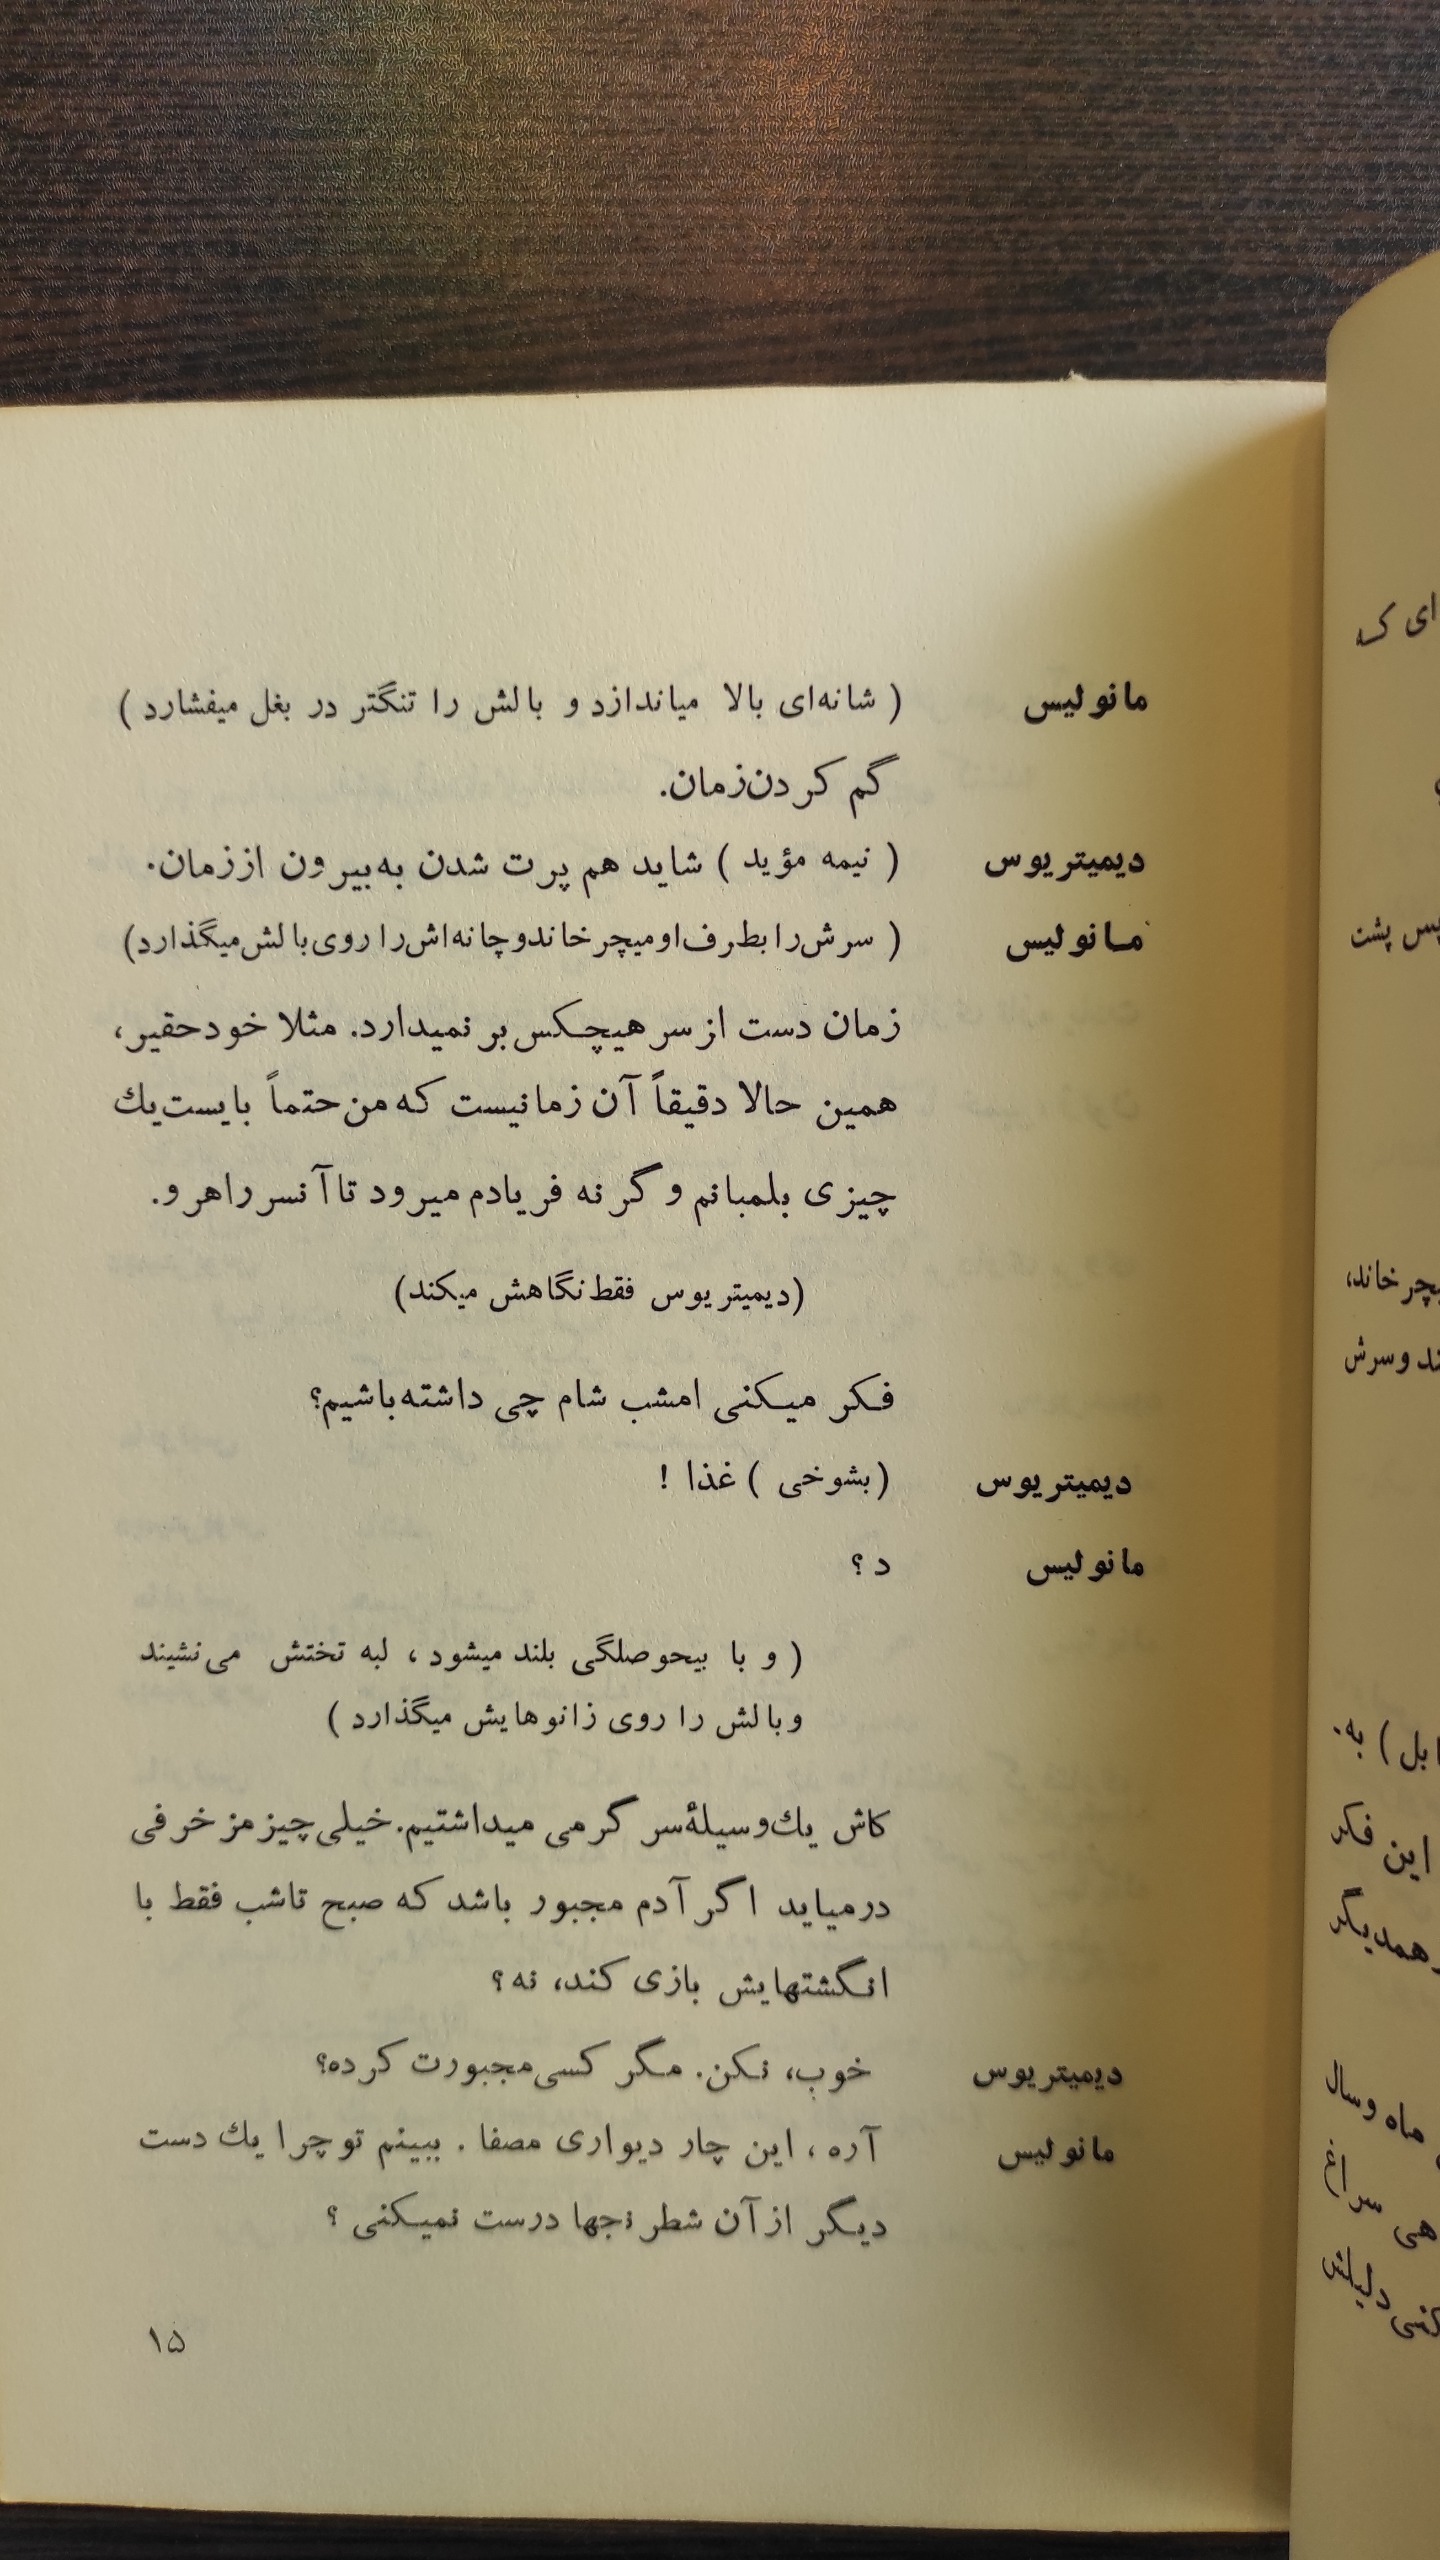 مانولیس ( شانه‌ای بالا میاندازد و بالش را تنگتر در بغل میفشارد )
گم کردن زمان.
دیمیتریوس ( نیمه مؤید ) شاید هم پرت شدن به بیرون از زمان.
مانولیس ( سرش را بطرف او میچرخاند و چانه‌اش را روی بالش میگذارد )
زمان دست از سر هیچکس بر نمیدارد. مثلا خود حقیر،
همین حالا دقیقاً آن زمانیست که من حتماً بایست یك
چیزی بلمبانم و گر نه فریادم میرود تا آنسر راهرو.
(دیمیتریوس فقط نگاهش میکند)
فکر میکنی امشب شام چی داشته باشیم؟
دیمیتریوس (بشوخی ) غذا !
مانولیس د ؟
( و با بیحوصلگی بلند میشود ، لبه تختش می‌نشیند
و بالش را روی زانوهایش میگذارد )
کاش یك وسیلهٔ سر گرمی میداشتیم. خیلی چیز مزخرفی
درمیاید اگر آدم مجبور باشد که صبح تا شب فقط با
انگشتهایش بازی کند، نه؟
دیمیتریوس خوب، نکن. مگر کسی مجبورت کرده؟
مانولیس آره ، این چار دیواری مصفا . ببینم تو چرا یك دست
دیگر از آن شطرنجها درست نمیکنی ؟
۱۵
ای که
پس پشت
میچرخاند،
ند و سرش
) به.
این فکر
همدیگر
ماه و سال
هی سراغ
دلیلش